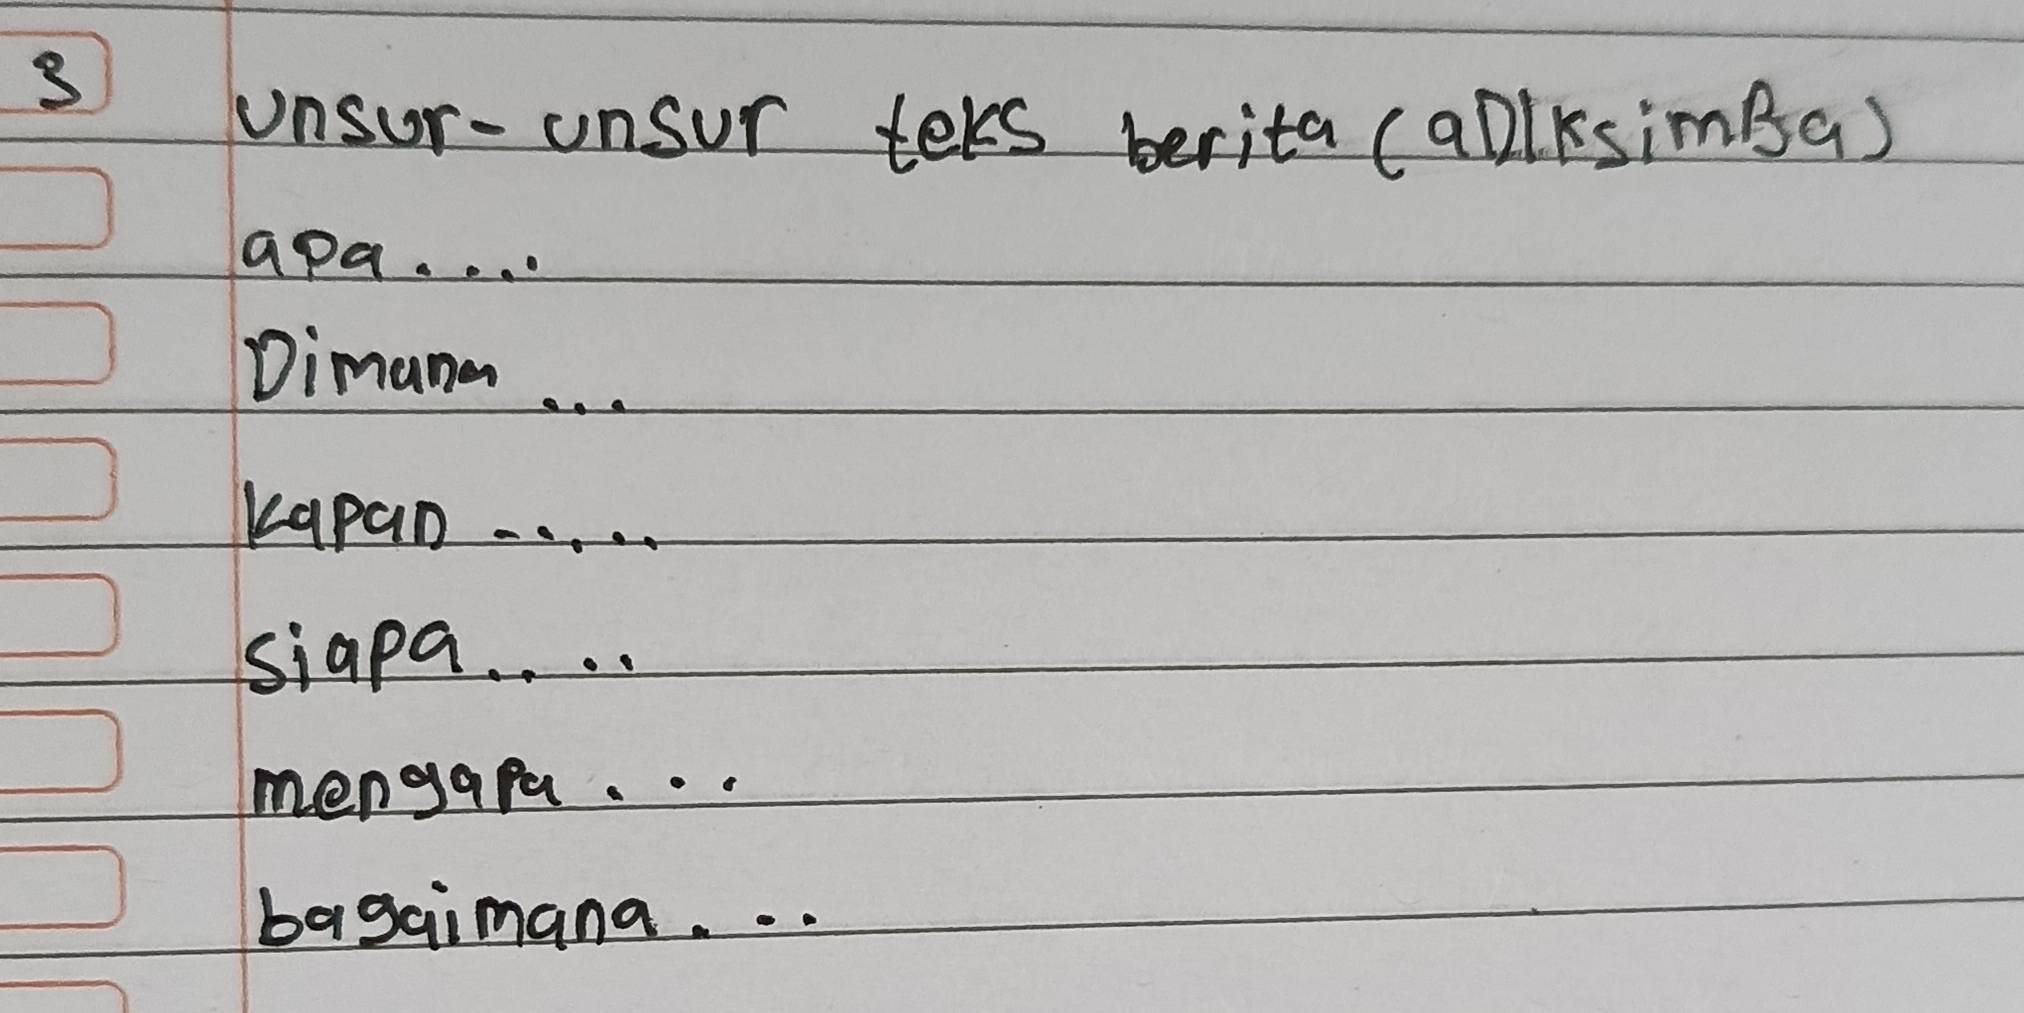 3 unsur-unsur teks berita (aDIksimBa)
apa.....
Dimana ...
kapan .....
siapa....
mengapa....
bagaimana...